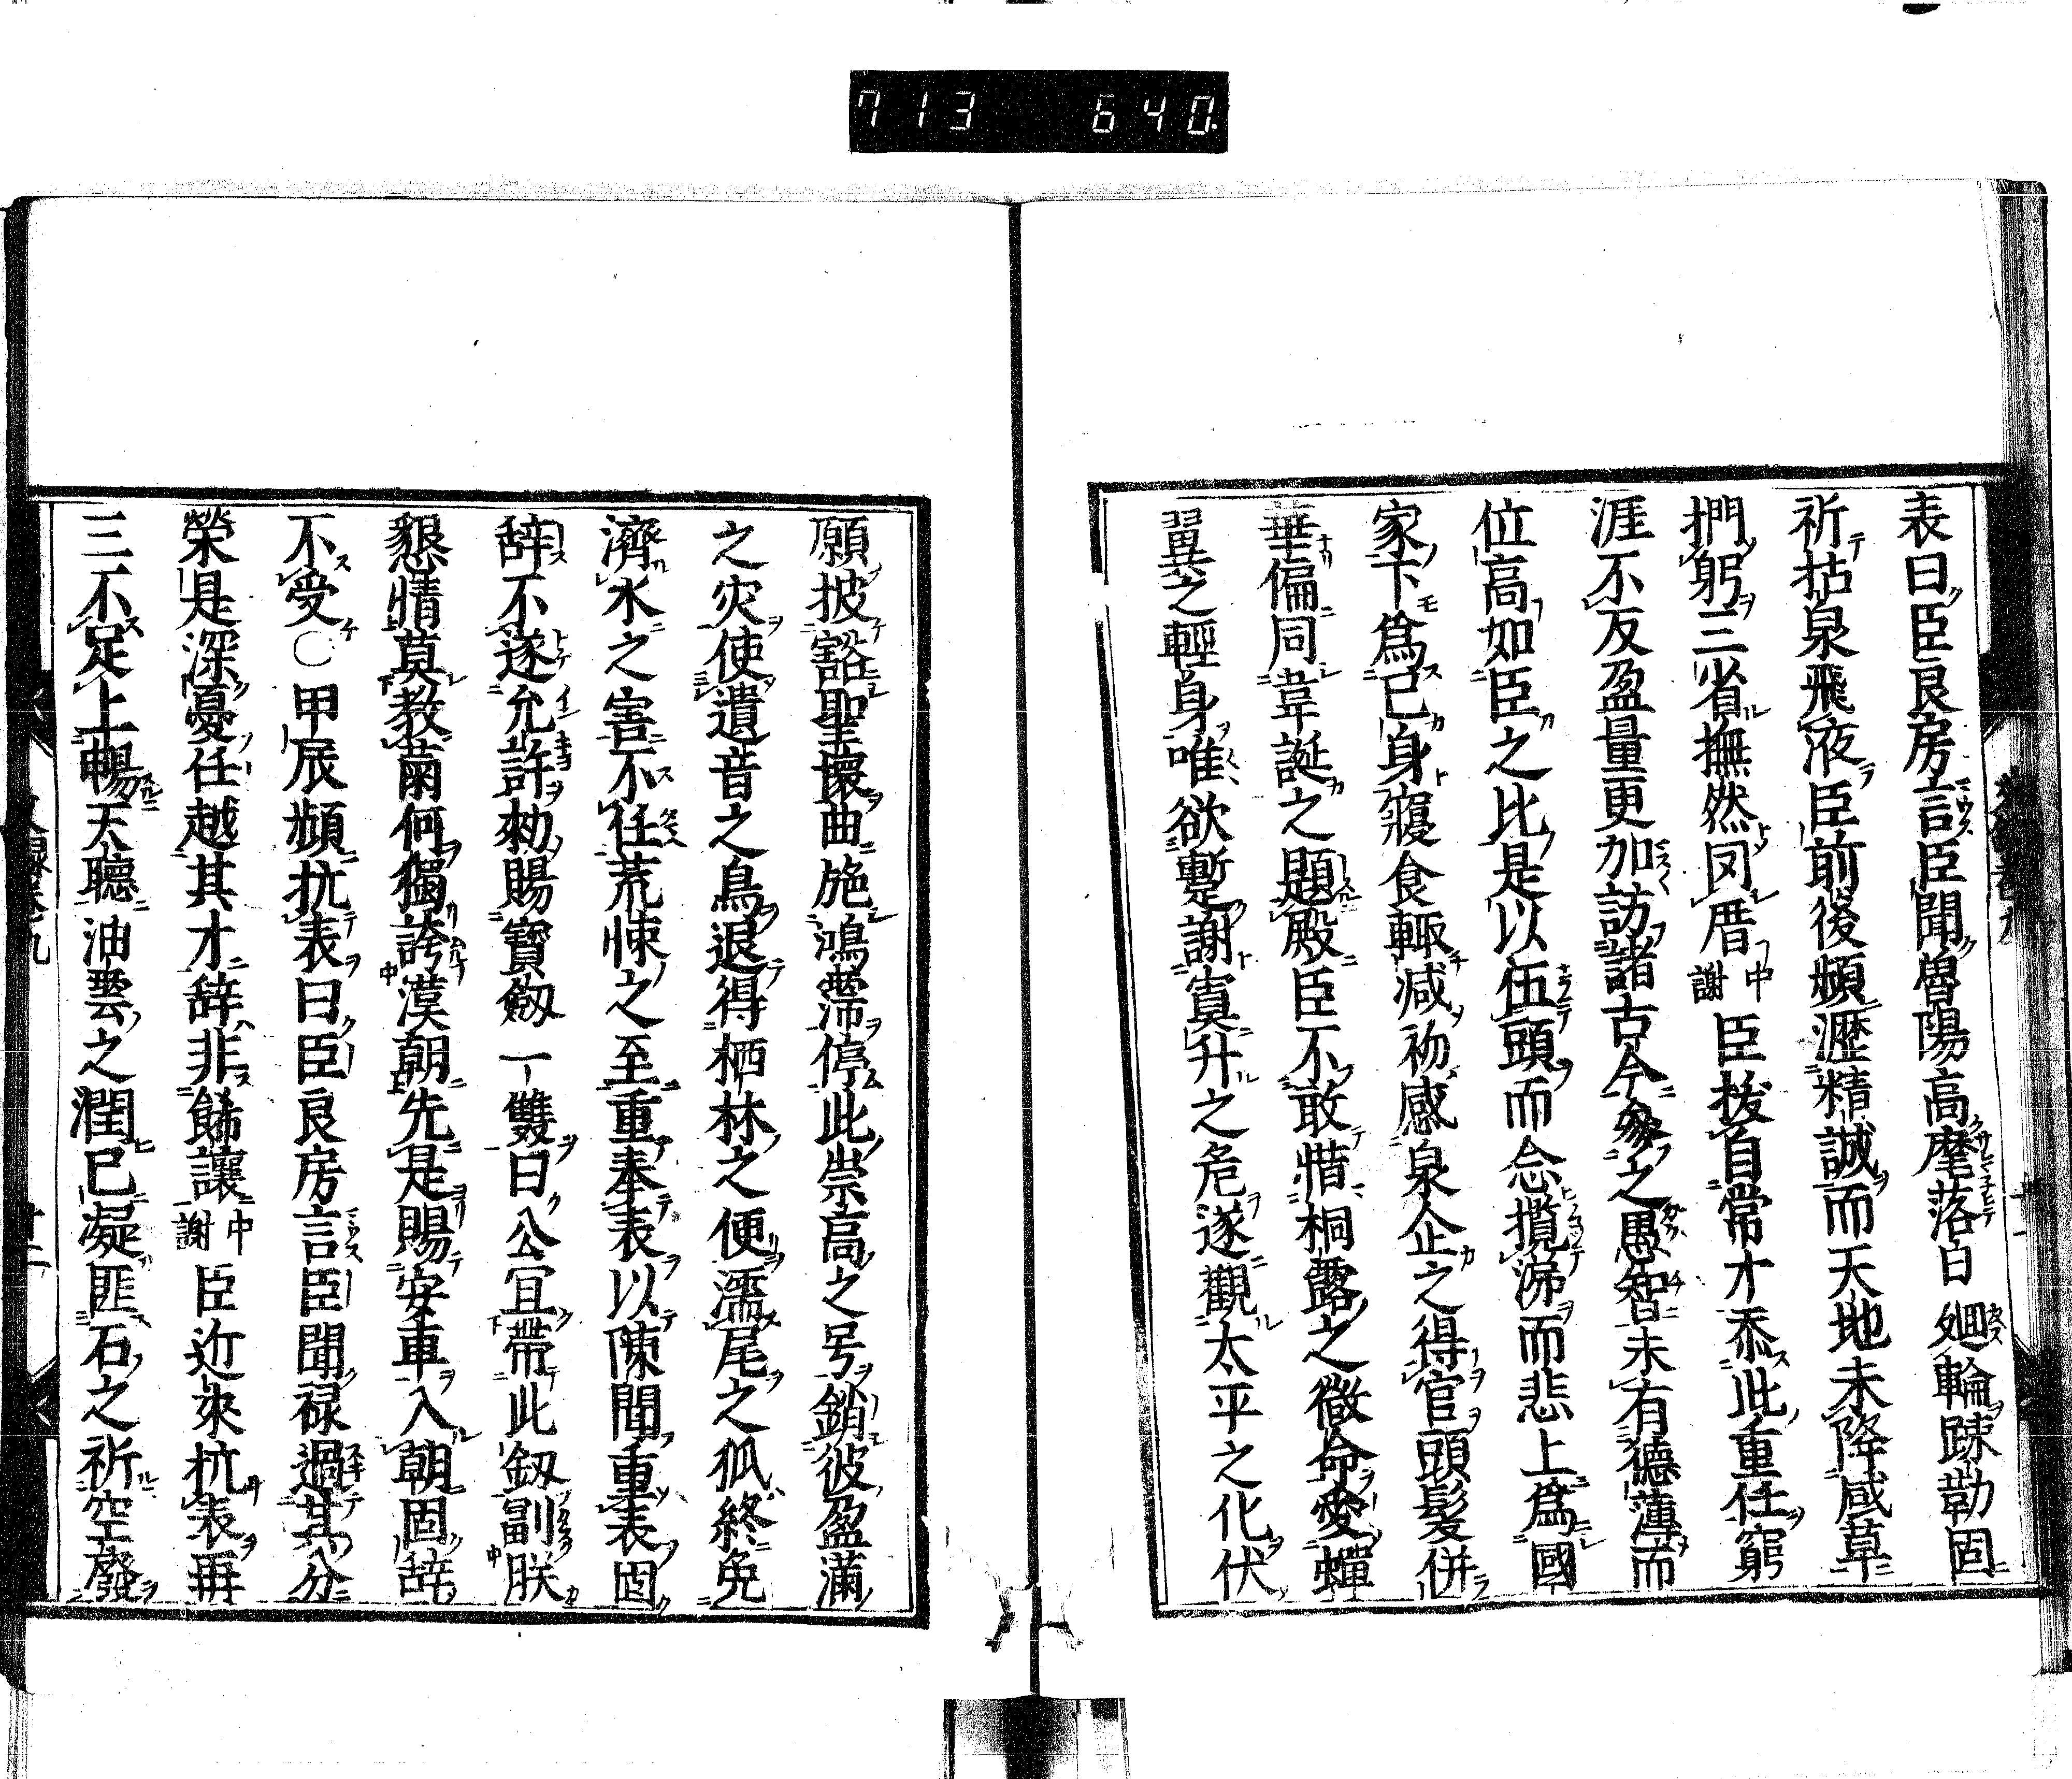 713 640.
表曰臣良房言臣聞魯陽高麾落日廻輪踈勒固
祈拈泉飛液臣前後頻瀝精誠而天地未降咸草
捫躬三省撫然罔厝中謝臣拔自常才忝此重任窮
涯不反盈量更加訪諸古今參之愚智未有德薄而
位高如臣之比是以伍頭而念攬涕而悲上爲國
家下爲己身寢食輙減祕感泉企之得官頭髮併
華偏同韋誕之題殿臣不敢惜桐露之徵命愛蟬
翼之輕身唯欲蹔謝寘升之危遂觀太平之化伏
願披豁聖懷曲施鴻霈停此崇高之号銷彼盈滿
之灾使遺音之鳥退得栖林之便濡尾之狐終免
濟水之害不任荒悚之至重奉表以陳聞重表固
辞不遂允許勑賜寶劔一雙曰公宜帶此釼副朕
懇情莫教蕑何獨誇漢朝先是賜安車入朝固辞
不受〇甲辰頻抗表曰臣良房言臣聞禄過其分
榮是深憂任越其才辞非餙讓中謝臣近來抗表再
三不足上暢天聽油雲之潤已凝匪石之祈空發